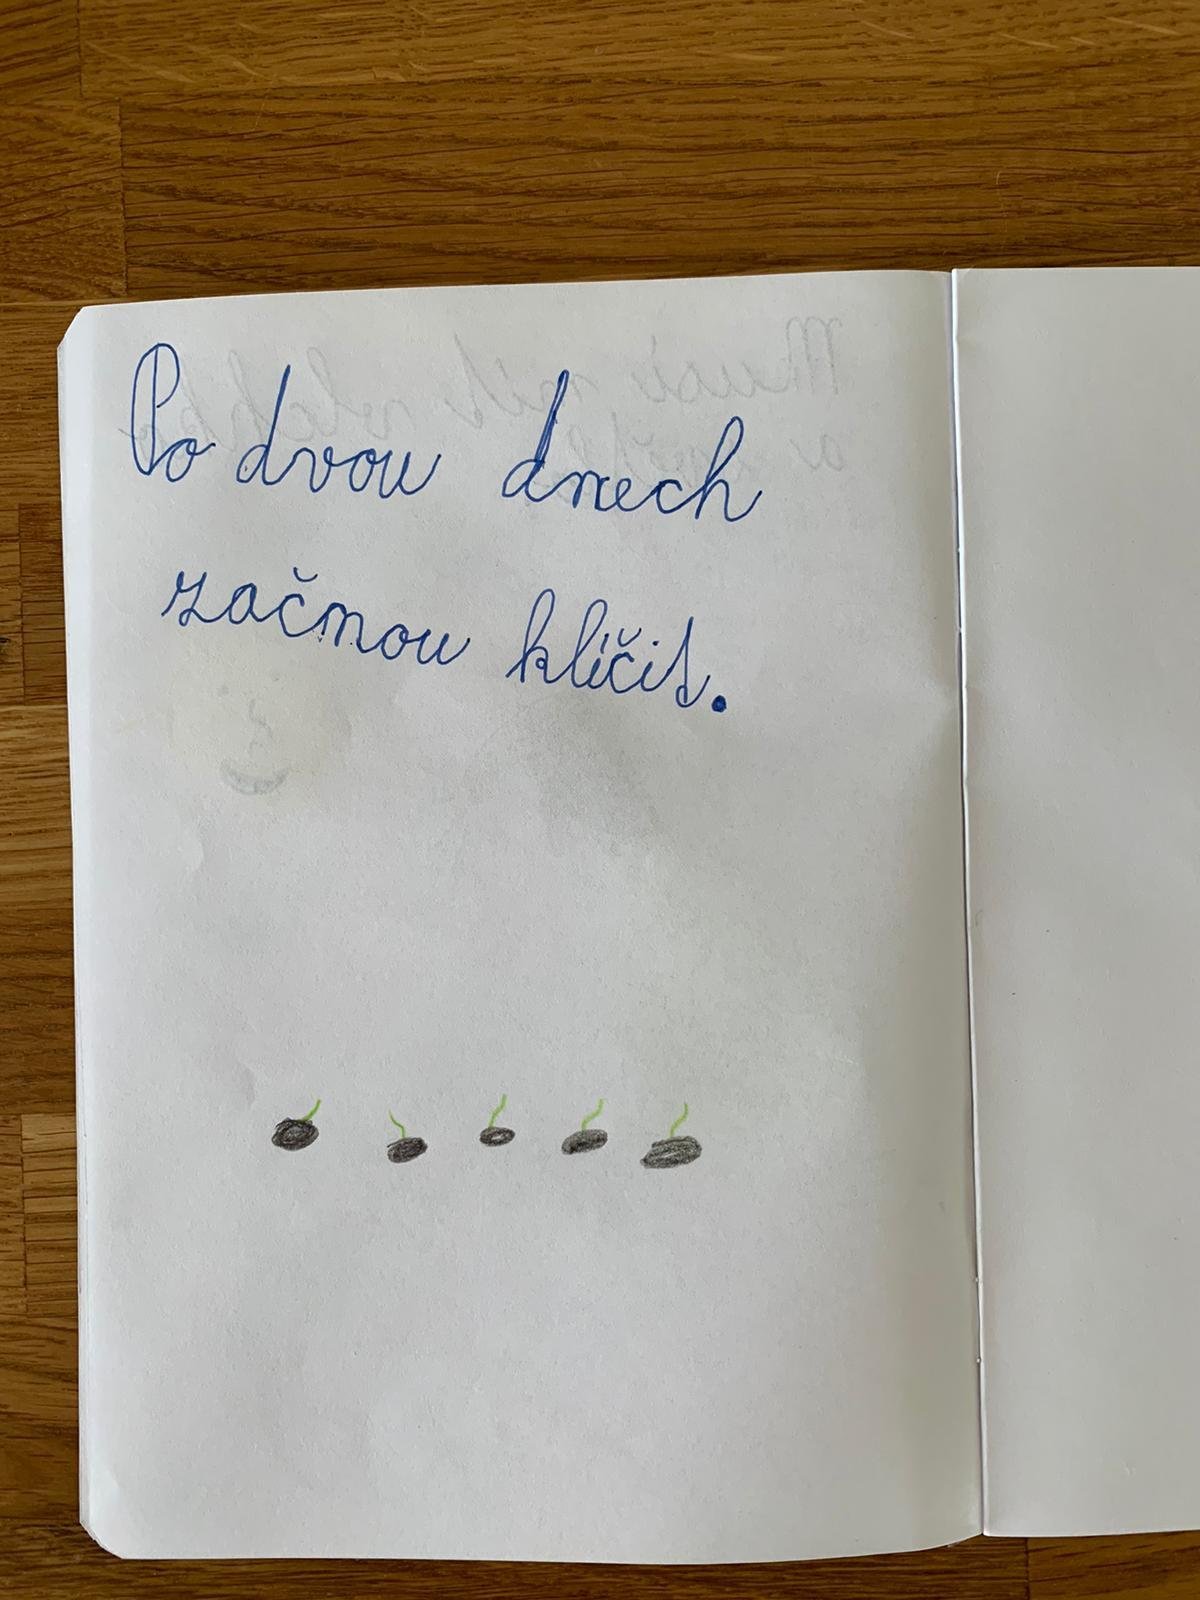 Po dvou dnech
začnou klíčit.